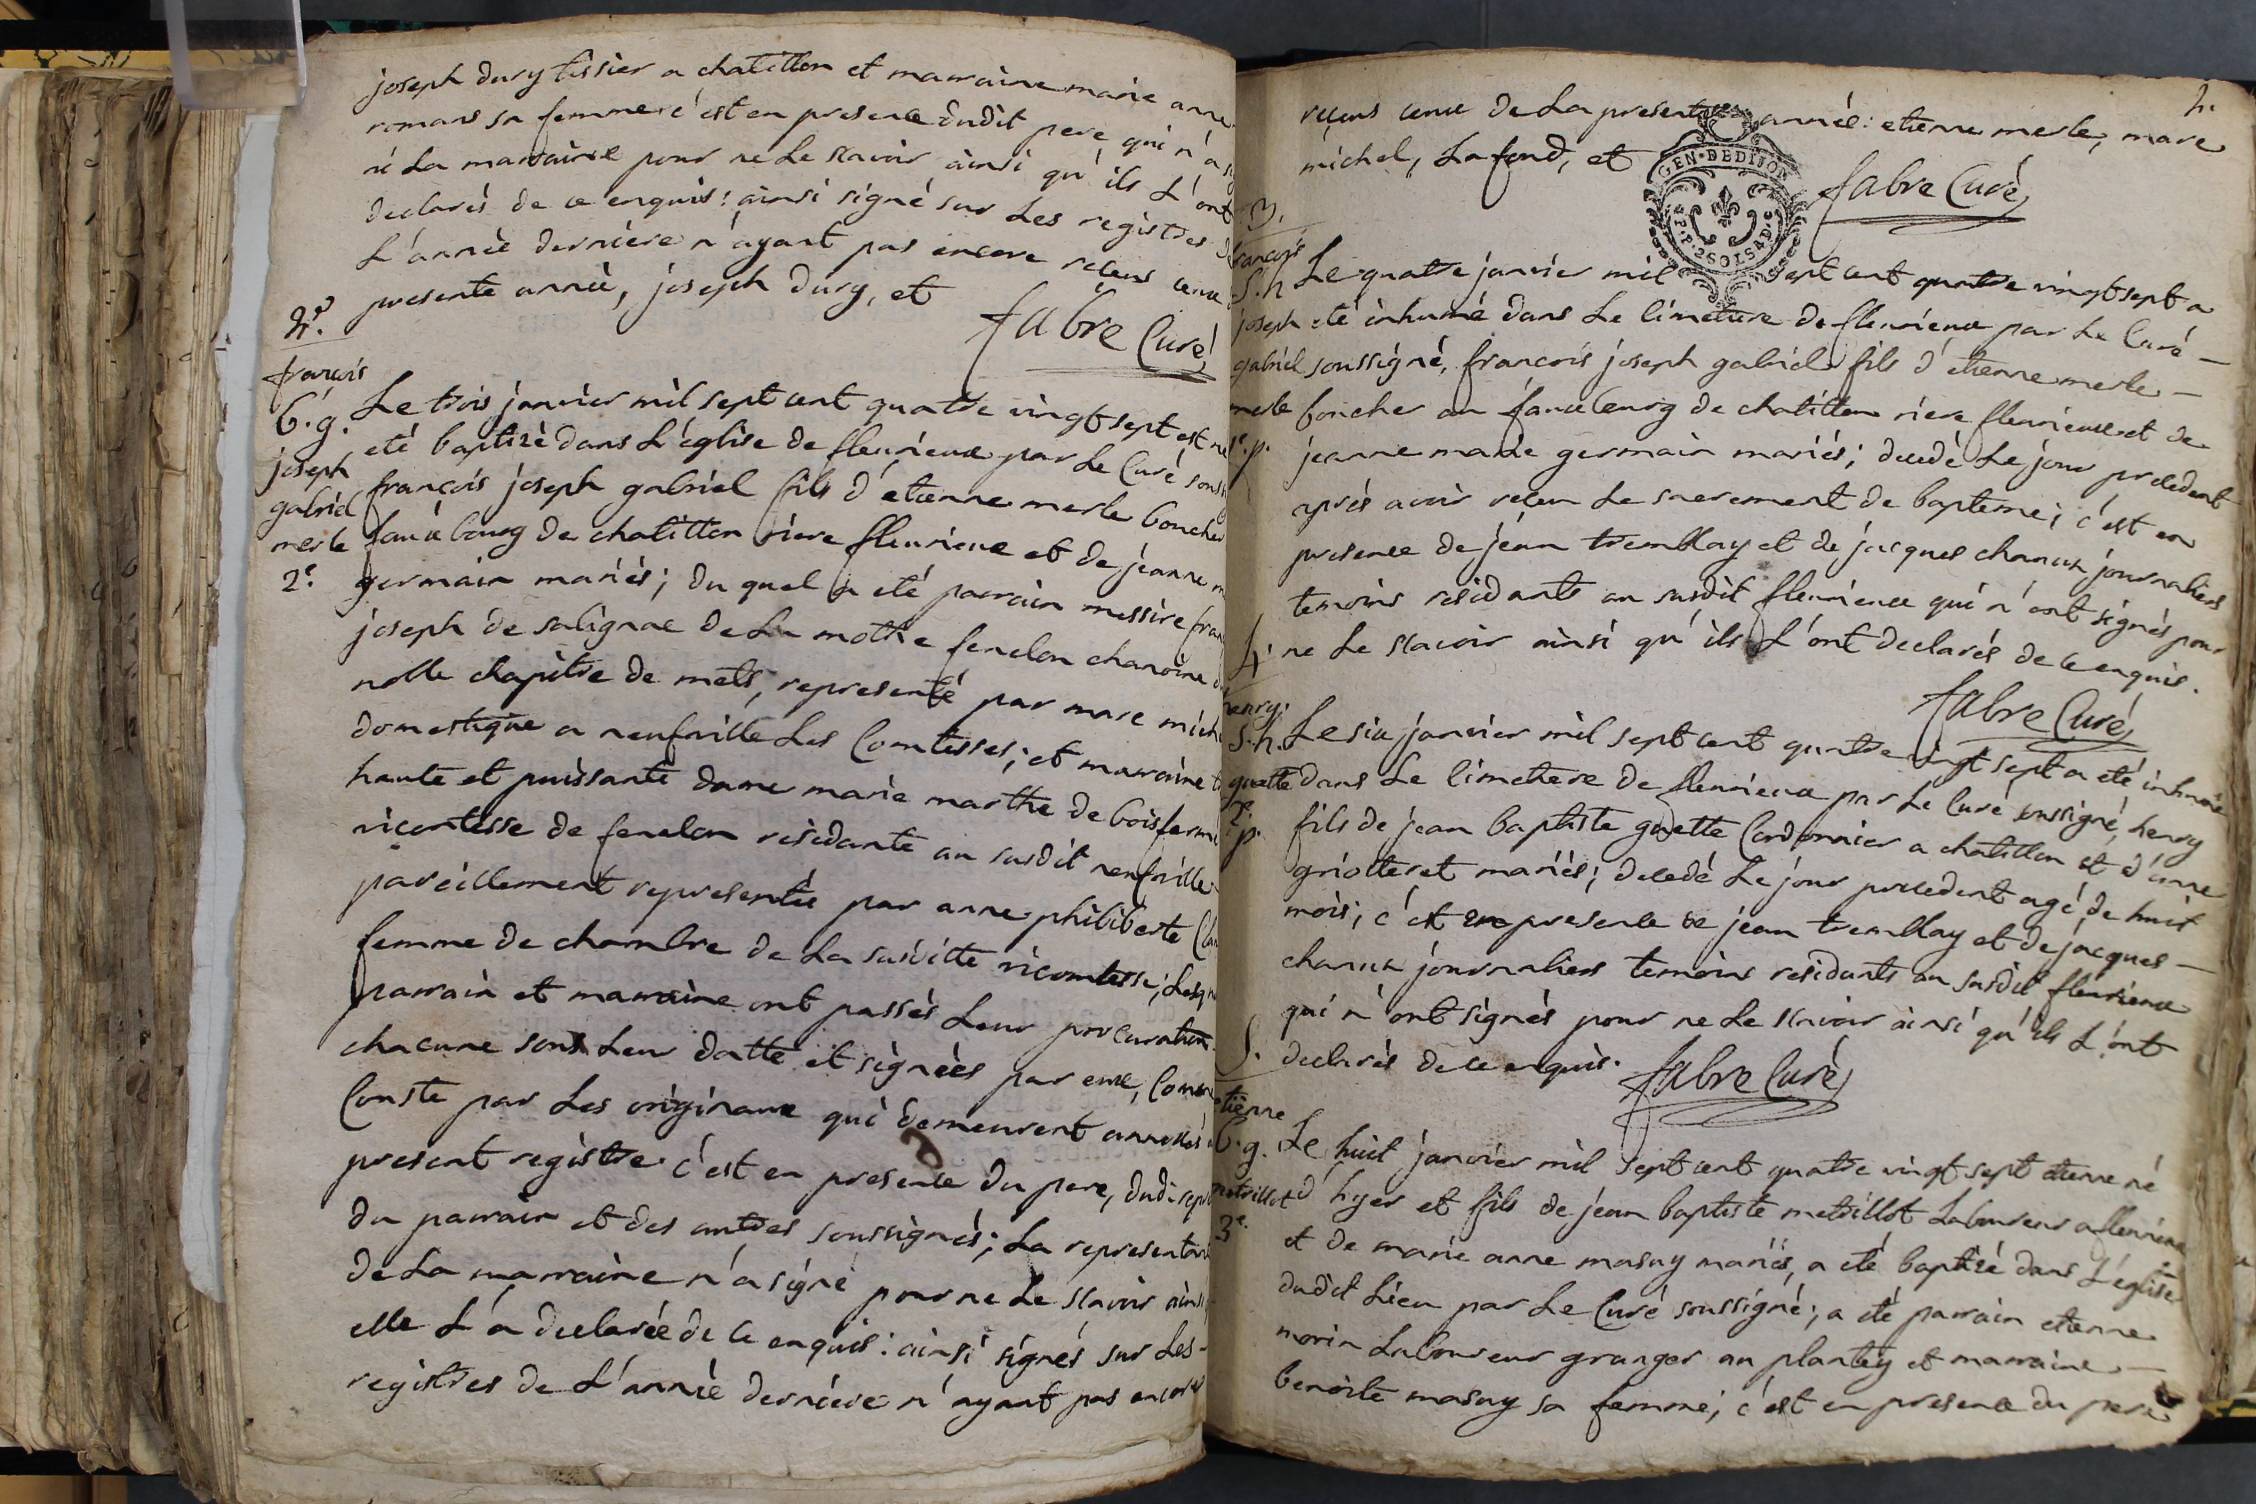 joseph dury tissier a chatillon et marraine marie anne
romans sa femme c'est en presence dudit pere qui n'a
ni La marraine pour ne Le scavoir ainsi qu'ils L'ont
declarés de ce enquis: ainsi signé sur Les registres
L'année derniere n'ayant pas encore reçeus ceux
presente année, joseph dury, et
fabre Curé
2e.
françois
b. g.
joseph
gabriel
merle
2e.
Le trois janvier mil sept cent quatre vingt sept est né
eté baptizé dans L'église de fleurieux par Le Curé
françois joseph gabriel fils d'etienne merle boucher
fauxbourg de chatillon riere fleurieux et de jeanne
germain mariés; du quel a eté parrain messire
joseph de salignac de La mothe fenelon chanoine
noble chapitre de mets, representé par marc
domestique a neufville Les Comtesses; et marraine
haute et puissante dame marie marthe de
vicontesse de fenelon residante au susdit neufville
pareillement representée par anne philiberte
femme de chambre de La susditte vicomtesse;
parrain et marraine ont passés Leur procuration
chacune sous Leur datte et signées par eux,
Conste par Les originaux qui demeurent annexés
present registre c'est en presence du pere,
du parrain et des autres soussignés; La
de La marraine n'a signé pour ne Le scavoir
elle L'a declarée de ce enquis: ainsi signés sur Les
registres de L'année derniere n'ayant pas encore
2.
reçeus ceux de La presente année: etienne merle, marc
michel, Lafond, et
GEN. DE DIJON
P.P. 2 SOLS 4 D.
fabre Curé
3.
françois
S. h.
joseph
gabriel
merle
1e. p.
Le quatre janvier mil sept cent quatre vingt sept a
eté inhumé dans Le Cimetiere de fleurieux par Le Curé
soussigné, françois joseph gabriel fils d'etienne merle
boucher au fauxbourg de chatillon riere fleurieux et de
jeanne marie germain mariés; decedé Le jour precedent
aprés avoir reçeu Le sacrement de bapteme; c'est en
presence de jean tremblay et de jacques journaliers
temoins residants au susdit fleurieux qui n'ont signés pour
ne Le scavoir ainsi qu'ils L'ont declarés de ce enquis.
fabre Curé
4.
henry
S. h.
guette
2e.
p.
Le six janvier mil sept cent quatre vingt sept a eté inhumé
dans Le Cimetiere de fleurieux par Le Curé soussigné, henry
fils de jean baptiste guette Cordonnier a chatillon et d'anne
griotteret mariés; decedé Le jour precedent agé de huit
mois; c'est en presence de jean tremblay et de jacques
journaliers temoins residants au susdit fleurieux
qui n'ont signés pour ne Le scavoir ainsi qu'ils L'ont
declarés de ce enquis.
fabre Curé
5.
etienne
b. g.
metrillot
3e.
Le huit janvier mil sept cent quatre vingt sept etienne né
d'hyer et fils de jean baptiste metrillot Laboureur a fleurieux
et de marie anne masuy mariés, a eté baptizé dans L'église
dudit Lieu par Le Curé soussigné; a eté parrain etienne
morin Laboureur granger au plantey et marraine
benoite masuy sa femme; c'est en presence du pere